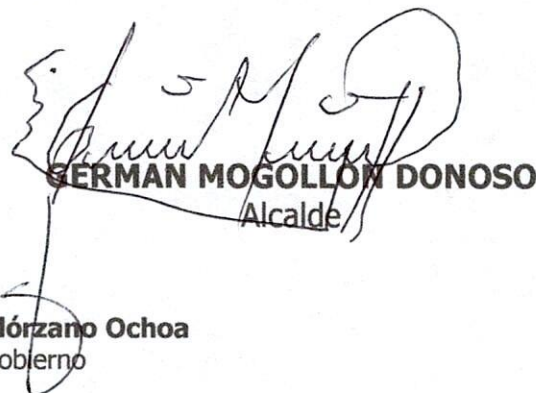 GERMAN MOGOLLON DONOSO
Alcalde
lórzano Ochoa
obierno